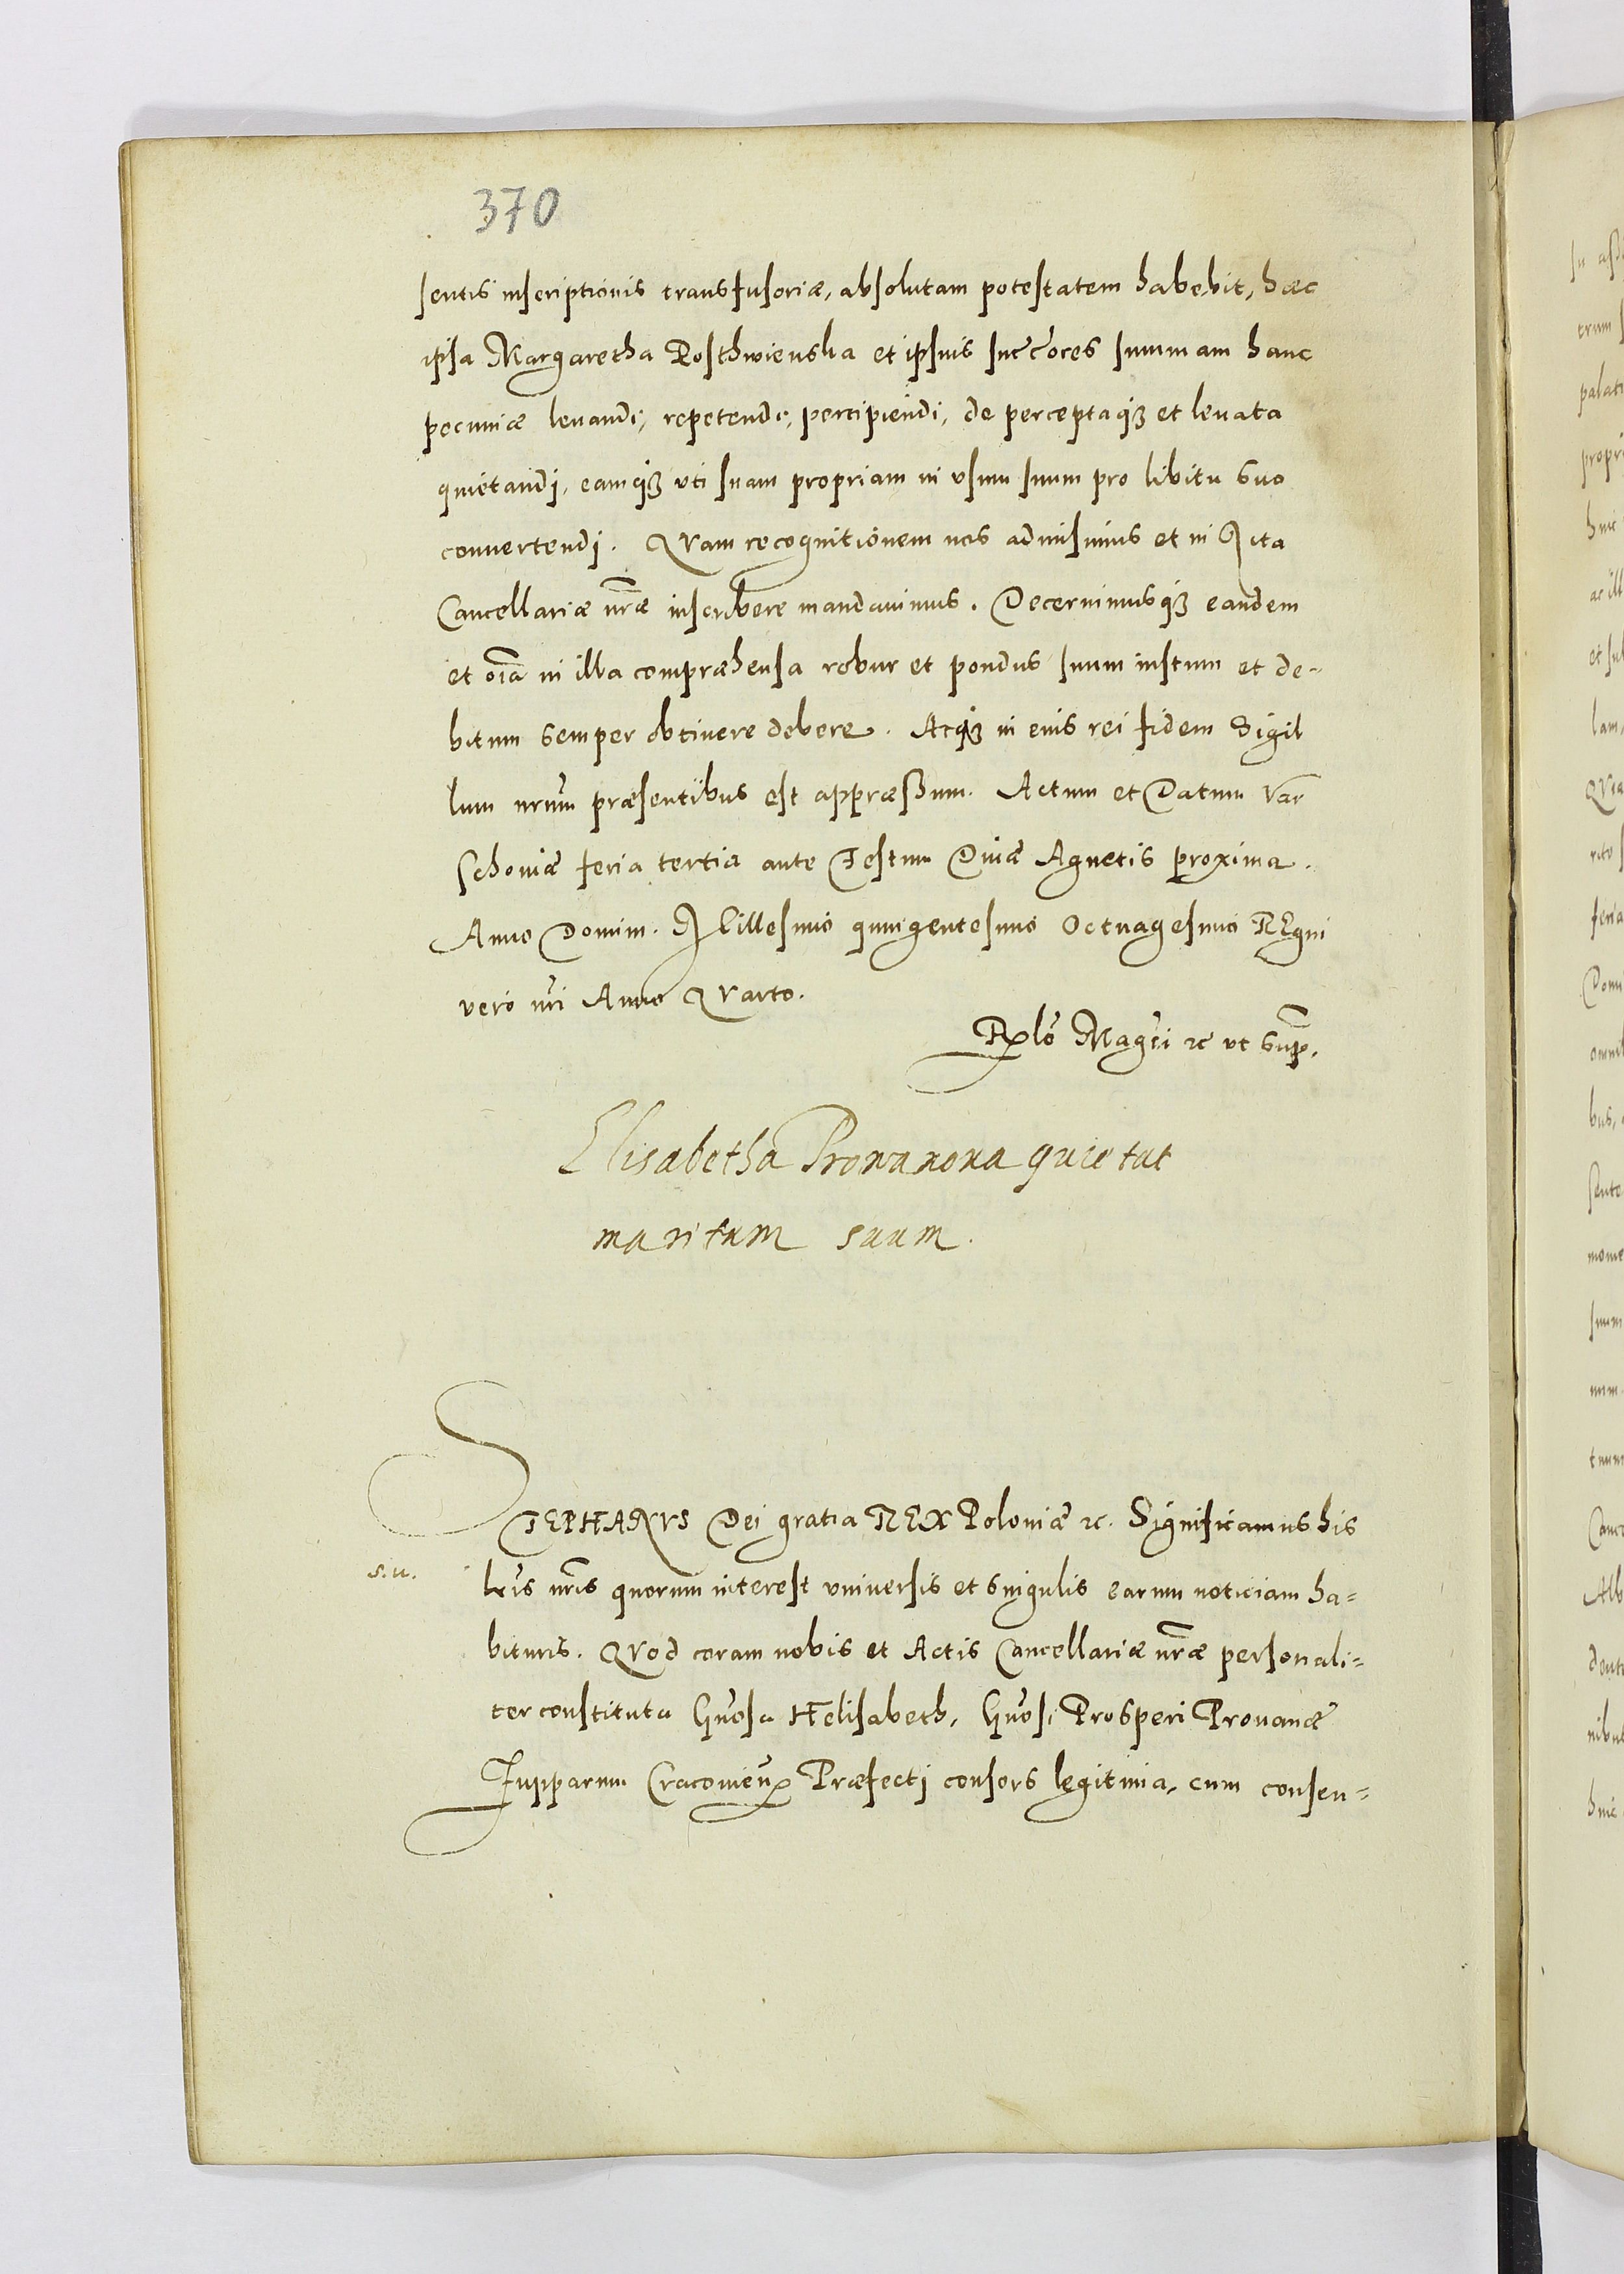 370
sentis inscriptionis transfusoriæ, absolutam potestatem habebit, hæc
ipsa Margaretha Rosthwienska et ipsius succores summam hanc
pecuniæ leuandi, repetendi, percipiendi, de perceptaq₃ et leuata
quietandi, eamq₃ vti suam propriam in vsum suum pro libitu suo
conuertendi. QVam recognitionem nos admisimus et in Acta
Cancellariæ nræ inscribere mandauimus. Decernimusq₃ eandem
et oia in illa compræhensa robur et pondus suum iustum et de-
bitum semper obtinere debere. Atq₃ in eius rei fidem Sigil
lum nrum præsentibus est appræssum. Actum et Datum Var
schouiæ feria tertia ante Festum Diuæ Agnetis proxima.
Anno Domini. Millesimo quingentesimo Octuagesimo REgni
vero nri Anno QVarto.
Rlo Magci ꝛc ut supr.
Elisabetha Prowanowa quietat
maritum suum.
STEPHANVS Dei gratia REX Poloniæ ꝛc. Significamus his
s.u.
lris nris quorum interest vniuersis et singulis earum noticiam ha-
bituris. QVod coram nobis et Actis Cancellariæ nræ personali-
ter constituta Gnosa Helisabeth, Gnosi Prosperi Prouanæ
Zupparum Cracouien Præfecti consors legitima, cum consen-